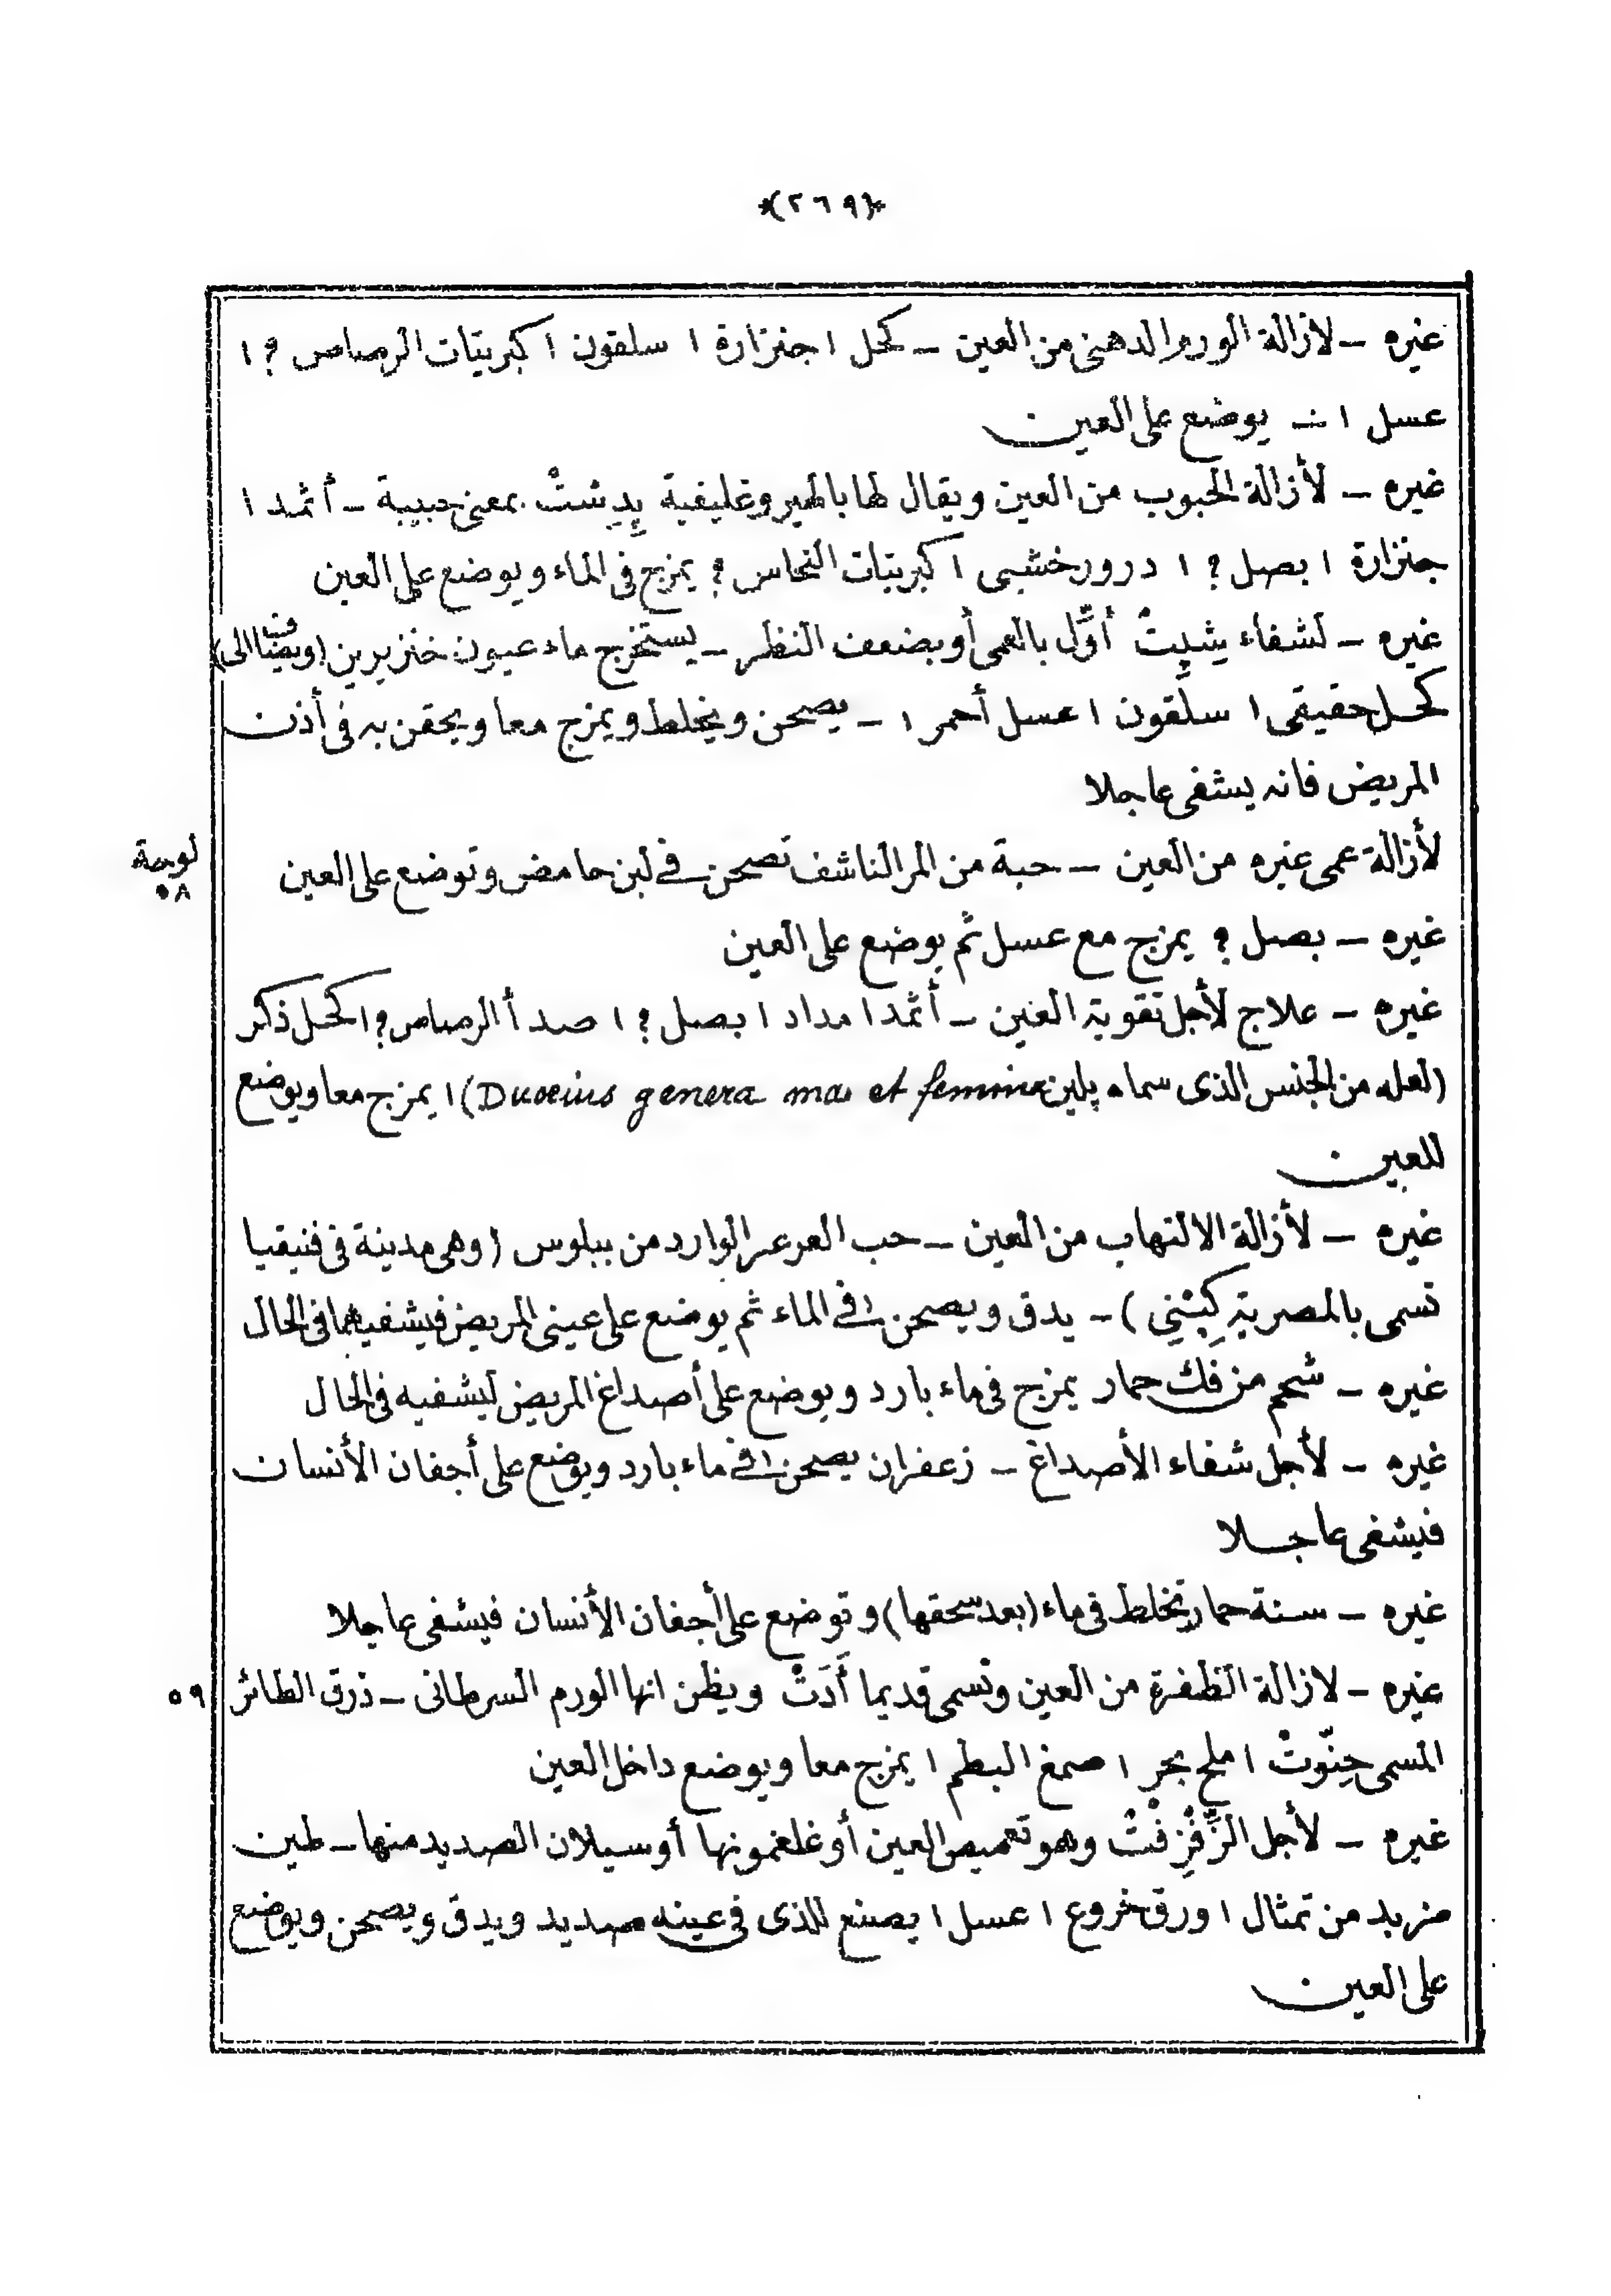 *(٢٦٩)*
غيره – لازالة الورم الدهنى من العين – كحل ١ جنزارة ١ سلقون ١ كبريتات الرصاص ? ١
عسل ١ – يوضع على العين
غيره – لأزالة الحبوب من العين ويقال لها بالهيروغليفية پِدِشتْ بمعنى حبيبة – أثمد ١
جنزارة ١ بصل ? ١ درور خشبى ١ كبريتات النحاس ? يمزج فى الماء ويوضع على العين
غيره – لشفاء شِپِتْ أوّل بالعمى أو بضعف النظر – يستخرج ماء عيون خنزيرين (ويضاف الى)
كحل حقيقى ١ سلقون ١ عسل أحمر ١ – يصحن ويخلط ويمزج معا ويحقن به فى أذن
المريض فانه يشفى عاجلا
لوحة ٥٨
لأزالة عمى غيره من العين – حبة من المر الناشف تصحن فى لبن حامض وتوضع على العين
غيره – بصل ? يمزج مع عسل ثم يوضع على العين
غيره – علاج لأجل تقوية العين – أثمد ١ مداد ١ بصل ? ١ صدأ الرصاص ? ١ كحل ذكر
(لعله من الجنس الذى سماه پلين Duoeius genera mas et femina) ١ يمزج معا ويوضع
للعين
غيره – لأزالة الالتهاب من العين – حب العرعر الوارد من ببلوس (وهى مدينة فى فنيقيا
تسمى بالمصرية كِبْنِي) – يدق ويصحن فى الماء ثم يوضع على عينى المريض فيشفيهما فى الحال
غيره – شحم من فك حمار يمزج فى ماء بارد ويوضع على أصداغ المريض ليشفيه فى الحال
غيره – لأجل شفاء الأصداغ – زعفران يصحن فى ماء بارد ويوضع على أجفان الأنسان
فيشفى عاجلا
غيره – سنة حمار تخلط فى ماء (بعد سحقها) وتوضع على أجفان الأنسان فيشفى عاجلا
٥٩
غيره – لازالة الظفرة من العين وتسمى قديما أَدَتْ ويظن انها الورم السرطانى – ذرق الطائر
المسمى حِنّوتْ ١ ملح بحر ١ صمغ البطم ١ يمزج معا ويوضع داخل العين
غيره – لأجل وهو تعميص العين أو غلغمونها أو سيلان الصديد منها – طين
مزبد من تمثال ١ ورق خروع ١ عسل ١ يصنع للذى فى عينه صديد ويدق ويصحن ويوضع
على العين